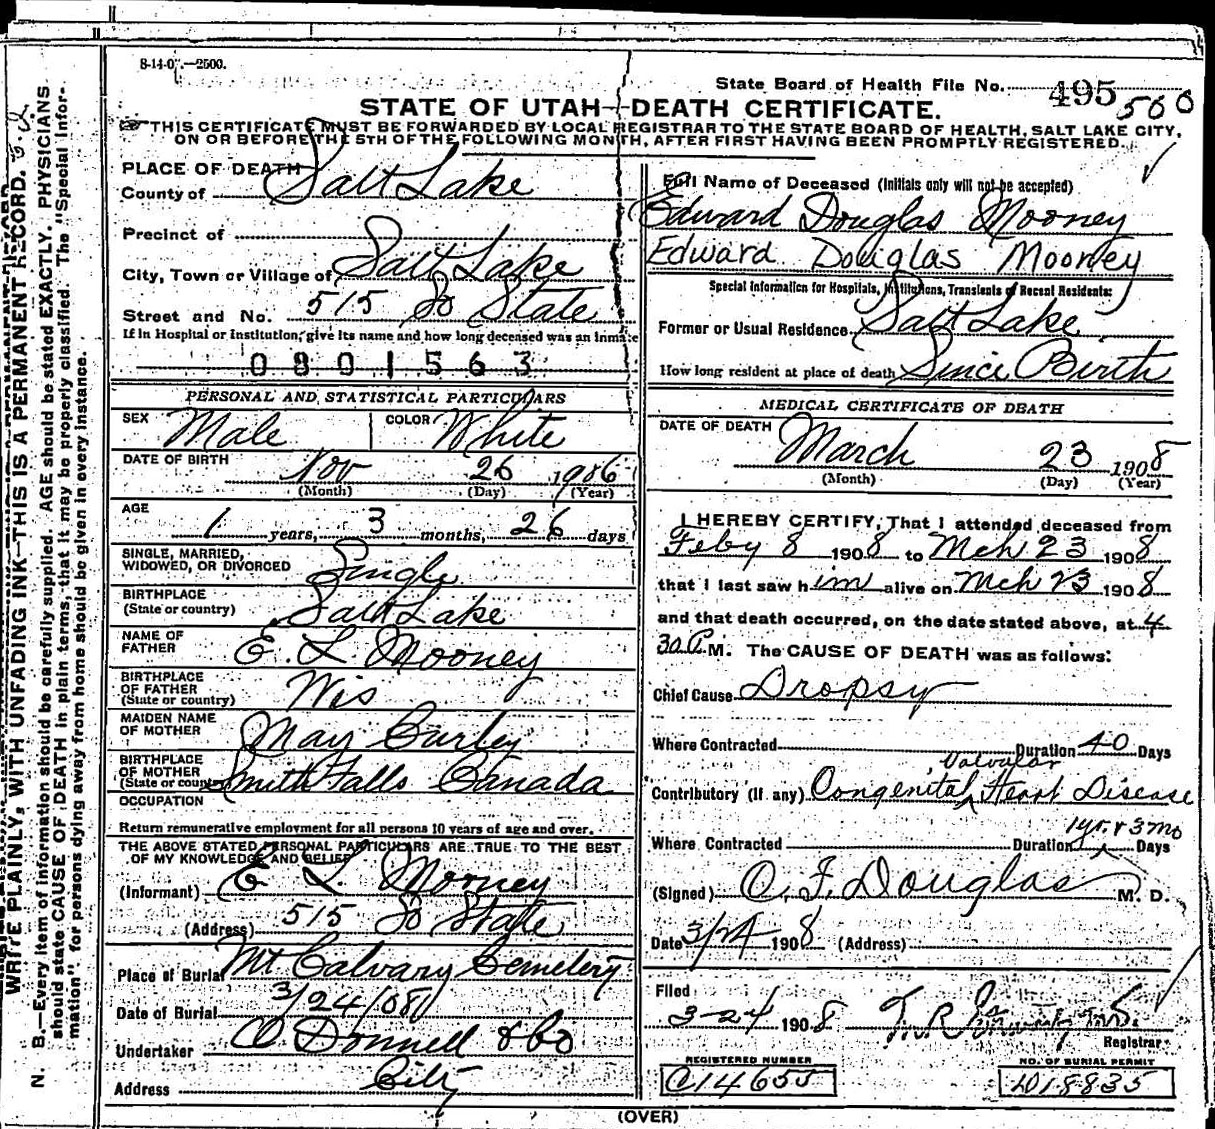 8-14-07.—2500.
State Board of Health File No. 495 500
STATE OF UTAH—DEATH CERTIFICATE.
THIS CERTIFICATE MUST BE FORWARDED BY LOCAL REGISTRAR TO THE STATE BOARD OF HEALTH, SALT LAKE CITY,
ON OR BEFORE THE 5TH OF THE FOLLOWING MONTH, AFTER FIRST HAVING BEEN PROMPTLY REGISTERED.
WRITE PLAINLY, WITH UNFADING INK—THIS IS A PERMANENT RECORD.
N. B.—Every item of information should be carefully supplied. AGE should be stated EXACTLY. PHYSICIANS
should state CAUSE OF DEATH in plain terms, that it may be properly classified. The "Special Infor-
mation" for persons dying away from home should be given in every instance.
PLACE OF DEATH
County of Salt Lake
Precinct of
City, Town or Village of Salt Lake
Street and No. 515 So State
If in Hospital or Institution, give its name and how long deceased was an inmate
0801563
PERSONAL AND STATISTICAL PARTICULARS
SEX Male COLOR White
DATE OF BIRTH Nov 26 1906
(Month) (Day) (Year)
AGE
1 years, 3 months, 26 days
SINGLE, MARRIED,
WIDOWED, OR DIVORCED Single
BIRTHPLACE
(State or country) Salt Lake
NAME OF
FATHER E. L. Mooney
BIRTHPLACE
OF FATHER
(State or country) Wis
MAIDEN NAME
OF MOTHER May Curley
BIRTHPLACE
OF MOTHER
(State or country) Smith Falls Canada
OCCUPATION
Return remunerative employment for all persons 10 years of age and over.
THE ABOVE STATED PERSONAL PARTICULARS ARE TRUE TO THE BEST
OF MY KNOWLEDGE AND BELIEF
(Informant) E L Mooney
(Address) 515 So State
Place of Burial Mt Calvary Cemetery
Date of Burial 3/24/08
Undertaker O Donnell & Co
Address City
Full Name of Deceased (Initials only will not be accepted)
Edward Douglas Mooney
Edward Douglas Mooney
Special Information for Hospitals, Institutions, Transients or Recent Residents:
Former or Usual Residence Salt Lake
How long resident at place of death Since Birth
MEDICAL CERTIFICATE OF DEATH
DATE OF DEATH March 23 1908
(Month) (Day) (Year)
I HEREBY CERTIFY, That I attended deceased from
Feby 8 1908 to Mch 23 1908
that I last saw him alive on Mch 23 1908
and that death occurred, on the date stated above, at 4
30 P.M. The CAUSE OF DEATH was as follows:
Chief Cause Dropsy
Where Contracted Duration 40 Days
Valvular
Contributory (if any) Congenital Heart Disease
1 yr. & 3 mo
Where Contracted Duration Days
(Signed) O. F. Douglas M. D.
Date 3/24 1908 (Address)
Filed
3-24 1908
Registrar
REGISTERED NUMBER
C14655
NO. OF BURIAL PERMIT
D18835
(OVER)